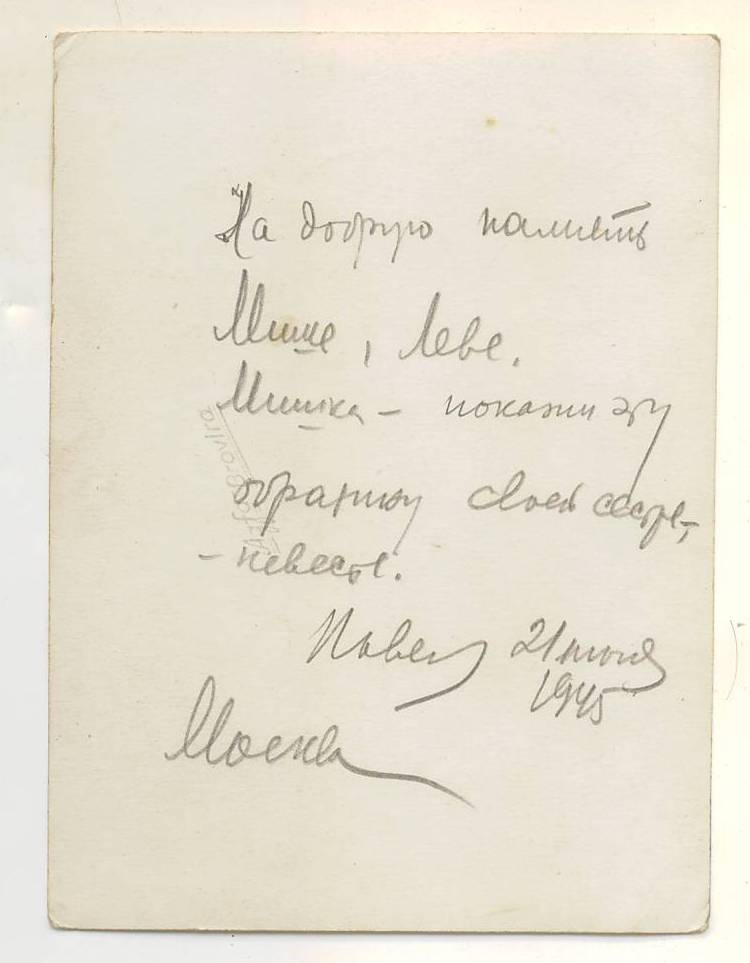 На добрую память
Мише, Леве.
Мишка – покажи эту
образину своей сестре,
- невесте.
Павел 21 июня
1945
Москва